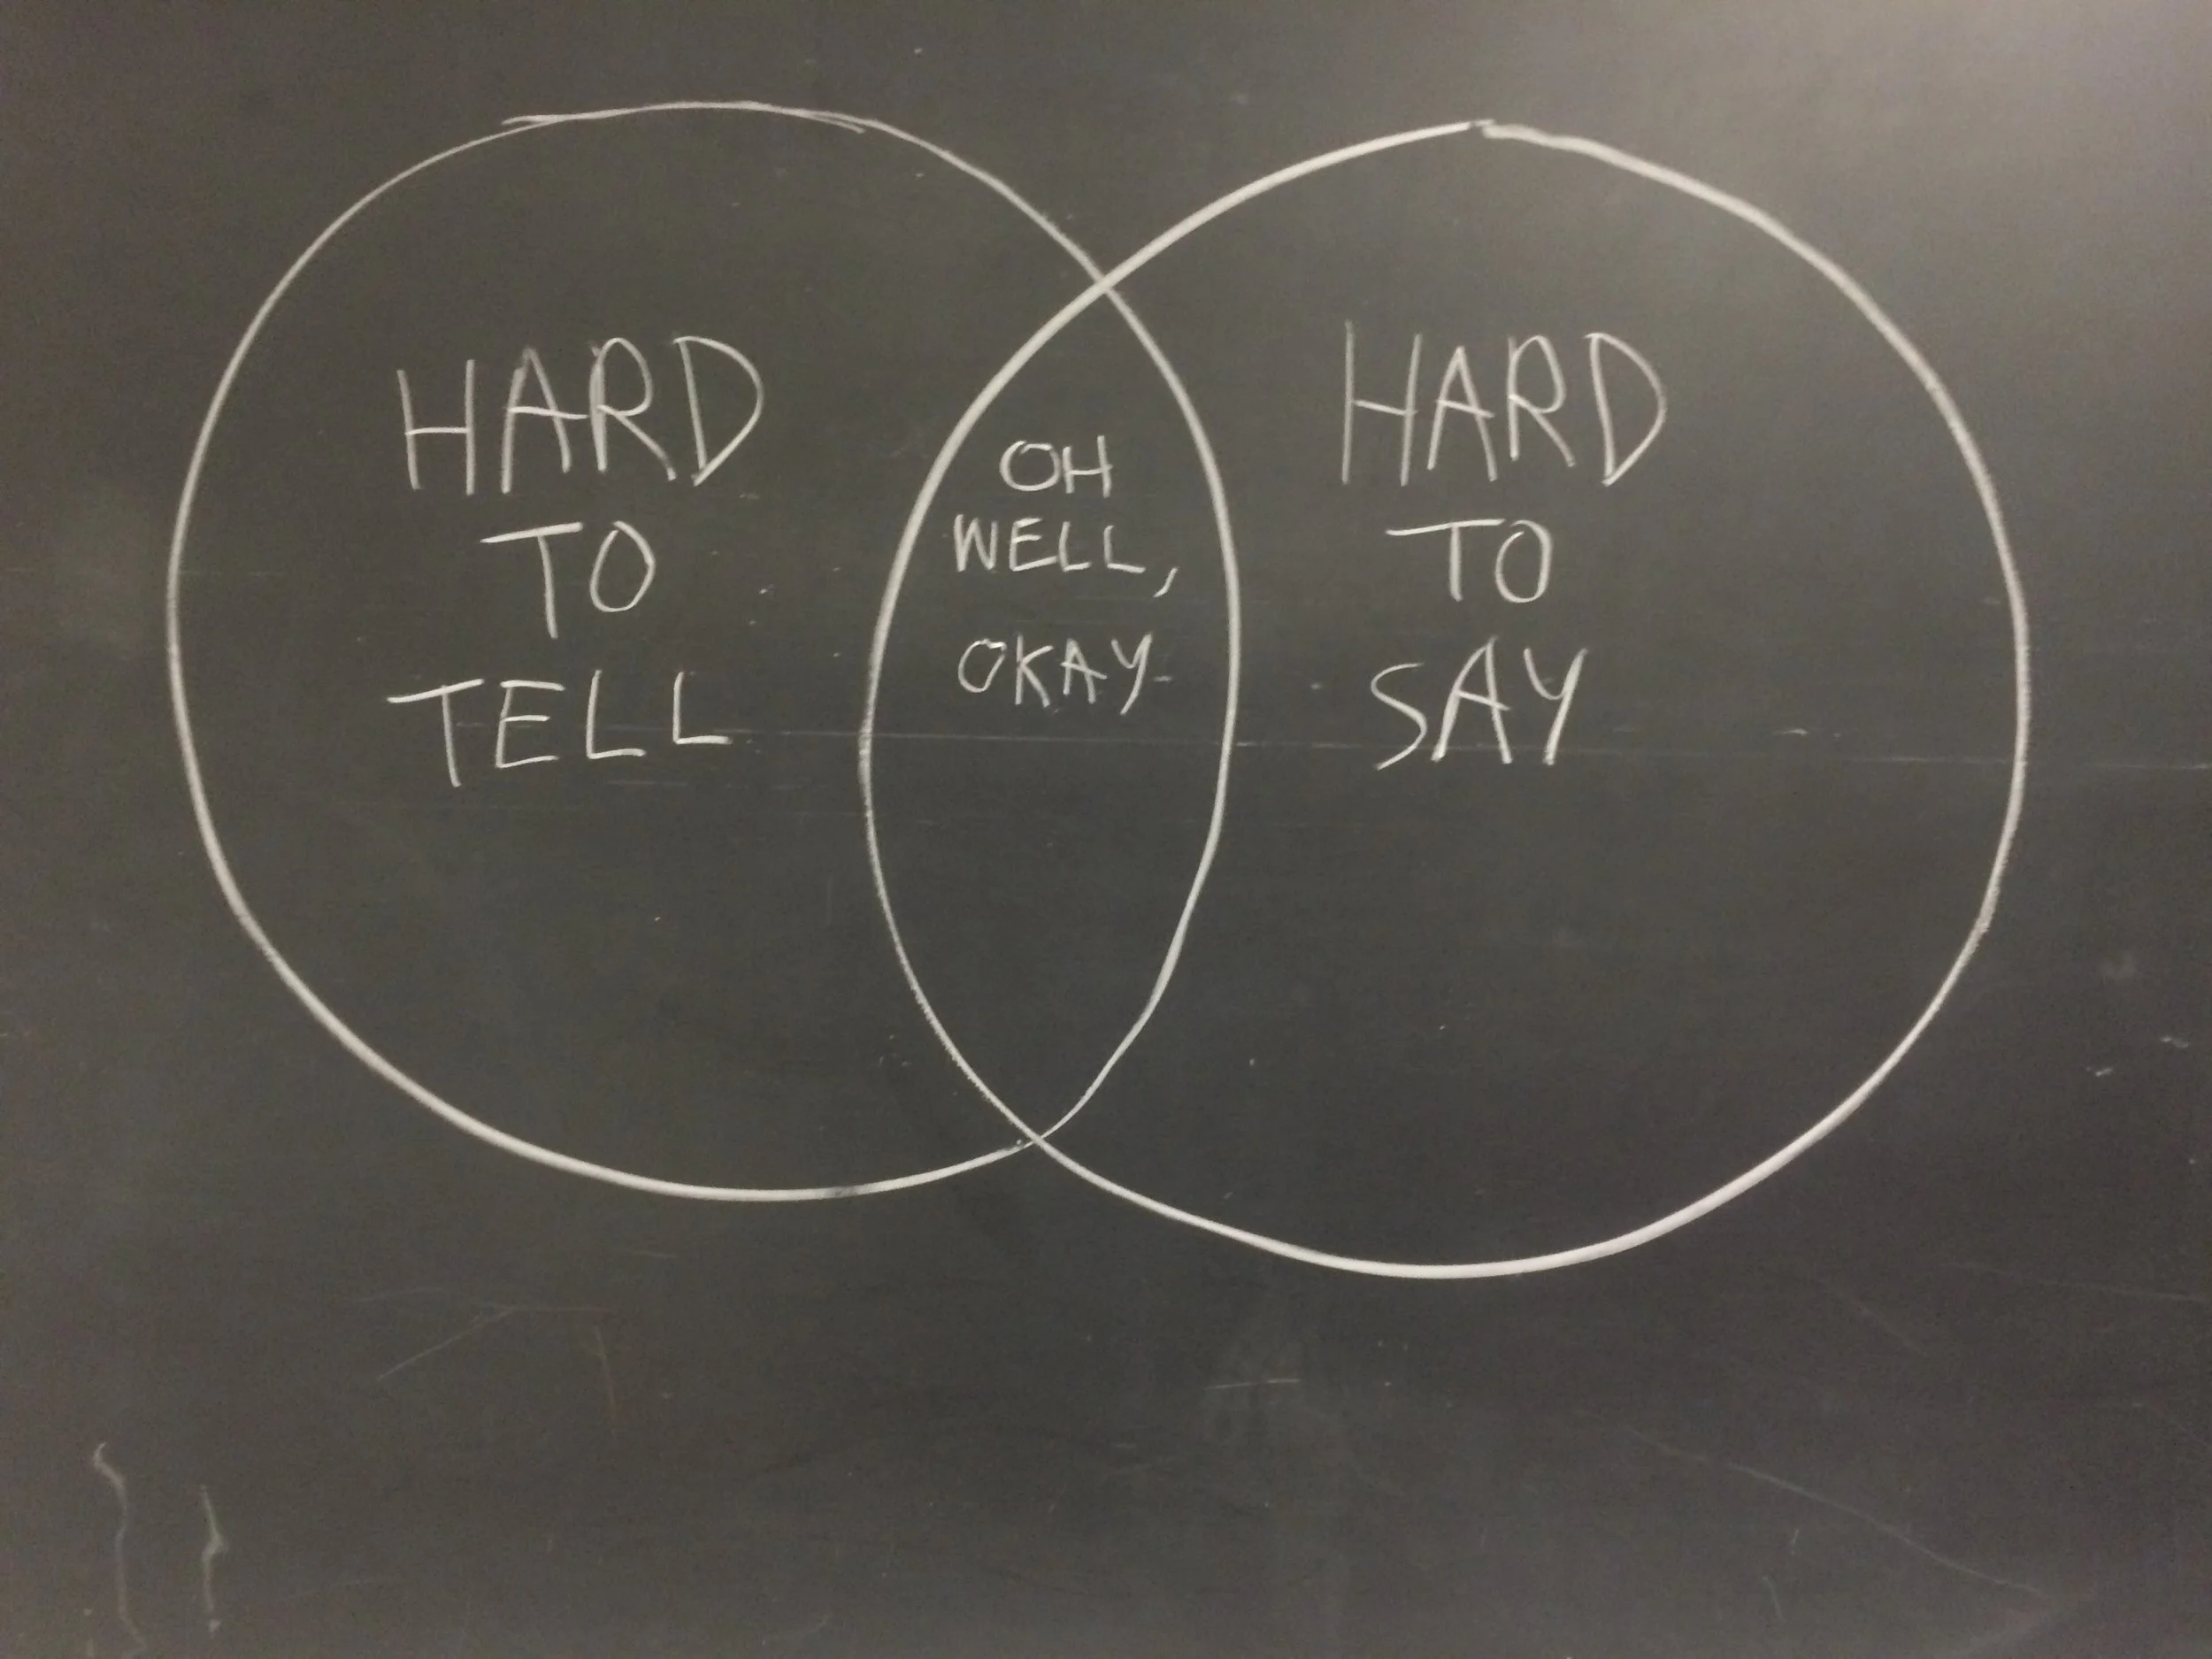 HARD
TO
TELL
OH
WELL,
OKAY
HARD
TO
SAY